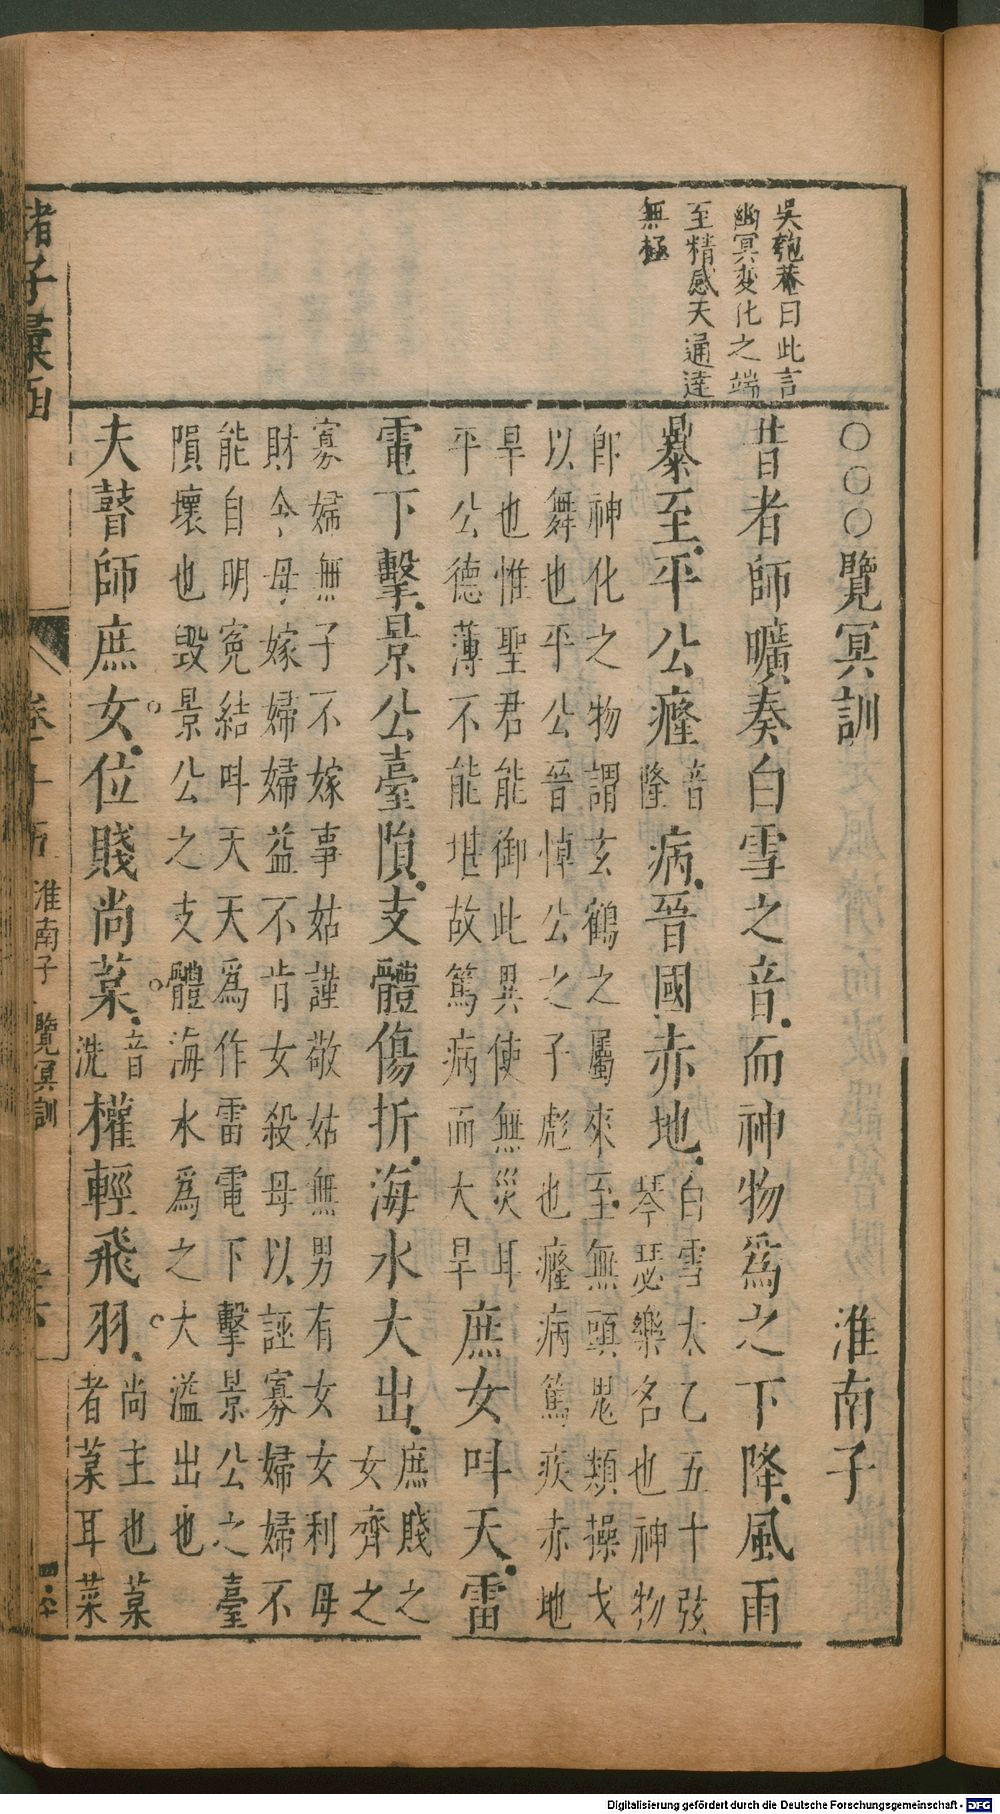 吳匏菴曰此言
幽冥変化之端
至精感天通達
無極
○○○覽冥訓 淮南子
昔者師曠奏白雪之音而神物爲之下降風雨
暴至平公癃音隆病晉國赤地白雪太乙五十弦琴瑟樂名也神物
卽神化之物謂玄鶴之屬來至無頭鬼類操戈
以舞也平公晉悼公之子彪也癃病篤疾赤地
旱也惟聖君能御此異使無災耳
平公德薄不能堪故篤病而大旱庶女叫天雷
電下擊景公臺隕支體傷折海水大出庶賤之女齊之
寡婦無子不嫁事姑謹敬姑無男有女女利母
財令母嫁婦婦益不肯女殺母以誣寡婦婦不
能自明寃結叫天天爲作雷電下擊景公之臺
隕壞也毁景公之支體海水爲之大溢出也
夫瞽師庶女位賤尚菒音洗權輕飛羽尚主也菒者菒耳菜
諸子彙函
卷十五
淮南子 覽冥訓
Digitalisierung gefördert durch die Deutsche Forschungsgemeinschaft - DFG